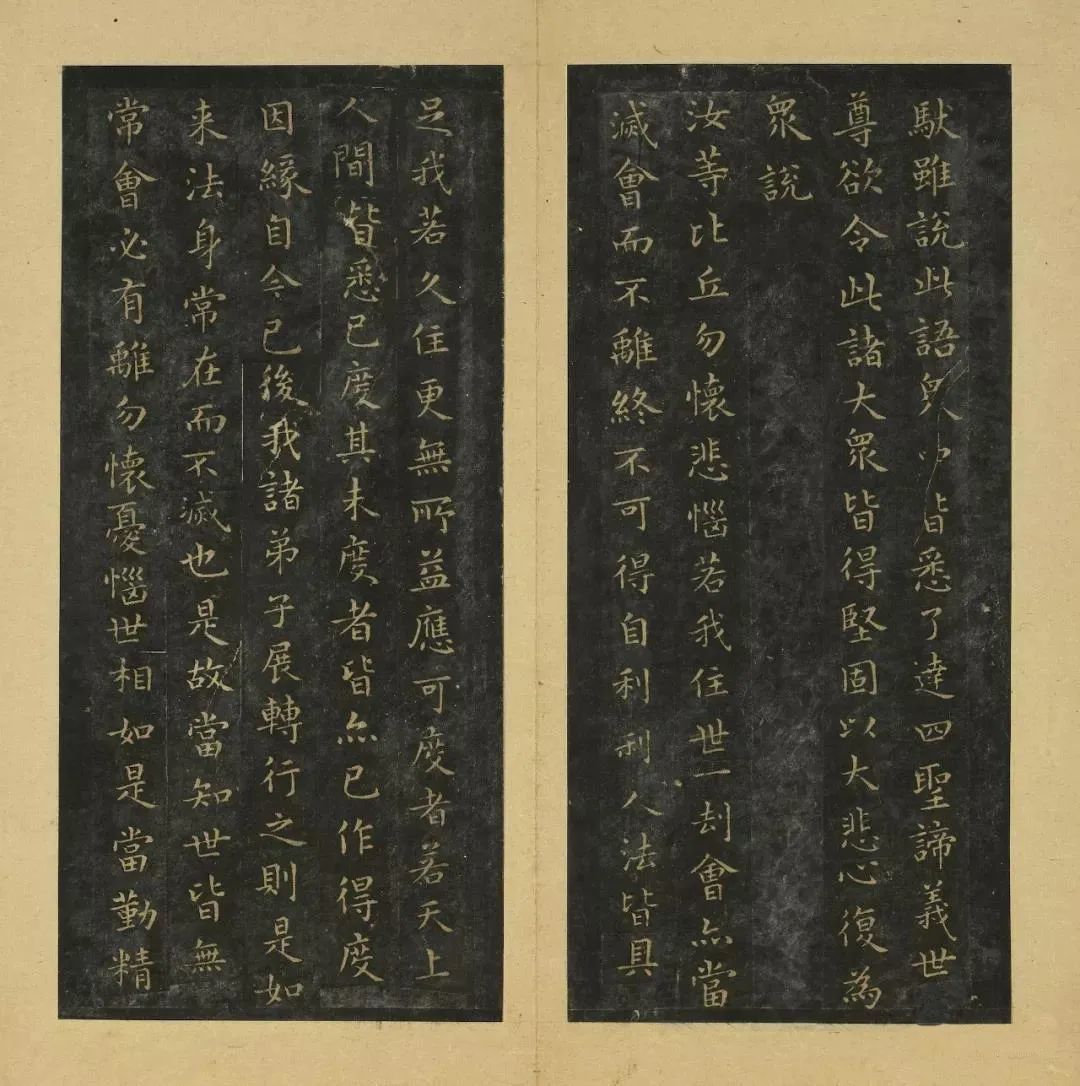 馱雖說此語眾中皆悉了達四聖諦義世
尊欲令此諸大眾皆得堅固以大悲心復為
眾說
汝等比丘勿懷悲惱若我住世一劫會亦當
滅會而不離終不可得自利利人法皆具
足我若久住更無所益應可度者若天上
人間皆悉已度其未度者皆亦已作得度
因緣自今已後我諸弟子展轉行之則是如
来法身常在而不滅也是故當知世皆無
常會必有離勿懷憂惱世相如是當勤精